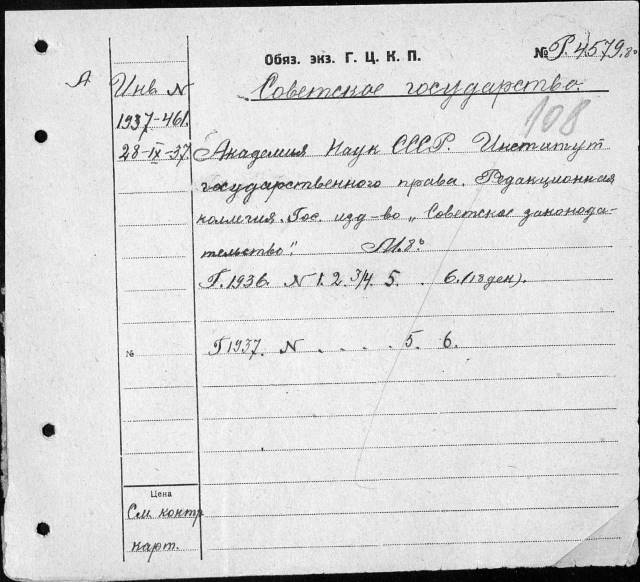 Обяз. экз. Г. Ц. К. П.
№ Р. 4579.8°
А
Инв. N
1937-461.
28-IX-37.
Советское государство.
108
Академия Наук СССР. Институт
государственного права. Редакционная
коллегия. Гос. изд-во „Советское законода-
тельство". М. 8°
Г. 1936. N 1. 2. 3/4. 5. . 6. (18 ден).
№
Г 1937. N . . . . 5. 6.
Цена
См. контр
карт.